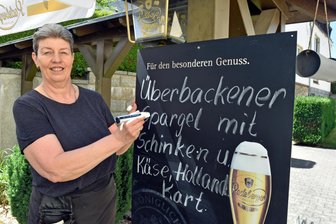 Für den besonderen Genuss.
Überbackener
Spargel mit
Schinken u.
Käse, Holland.
Kart.